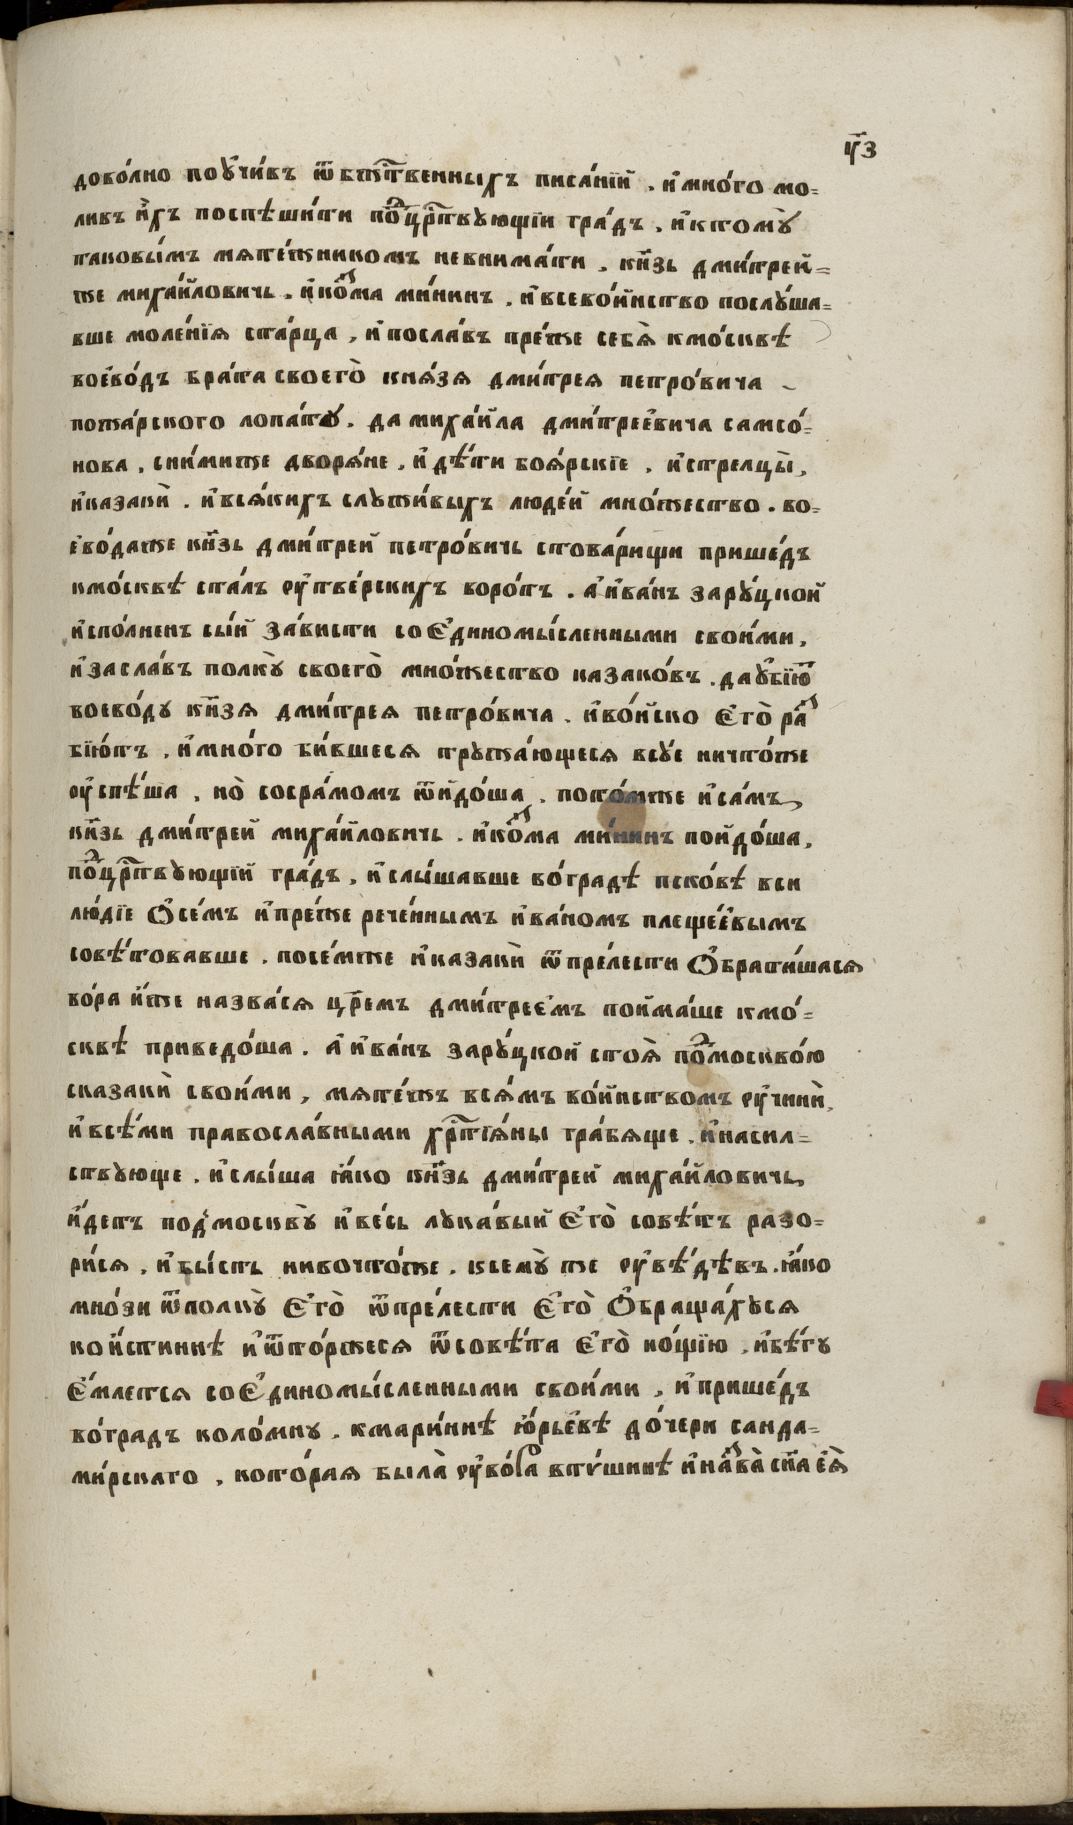 ч҃з
дово́лно поꙋчи́въ ѿ бж҃твенныхъ писа́нїй . и҆ мно́го мо=
ливъ и҆́хъ поспѣши́ти поⷣ црⷭ҇твꙋющїи гра́дъ , и҆ ктомꙋ̀
таковы́мъ мѧте́жникомъ невнима́ти . кн҃зь дми́трей=
же миха́йловичь . и҆ коⷥма ми́нинъ , и҆ все во́инство послꙋ́ша=
вше моле́нїѧ ста́рца , и҆ посла́въ пре́же себѧ̀ к мо́сквѣ
воево́дъ бра́та своего̀ кнѧ́зѧ дми́треѧ петро́вича
пожа́рского лопа́тꙋ . да миха́йла дми́треевича самсо́=
нова , сни́миже дворѧ́не , и҆ дѣ́ти боѧ́рскїе , и҆ стрелцы̀,
и҆ казакѝ . и҆ всѧ́кихъ слꙋжи́выхъ люде́й мно́жество . во=
ево́даже кн҃зь дми́трей петро́вичь стова́рищи прише́дъ
к мо́сквѣ ста́лъ ᲂу҆ тве́рскихъ воро́тъ . а҆ и҆ва́нъ зарꙋ́цкой
и҆спо́лненъ сы́й за́висти со є҆диномы́сленными свои́ми ,
и҆ засла́въ полкꙋ̀ своего̀ мно́жество казако́въ . да ᲂу҆бїю́ⷮ
воево́дꙋ кн҃зѧ дми́треѧ петро́вича . и҆ во́йско є҆го̀ раⷥ
бїю́тъ , и҆ мно́го би́вшесѧ трꙋжа́ющесѧ всꙋ́е ничто́же
ᲂу҆спѣ́ша , но̀ сосра́момъ ѿидо́ша . пото́мже и҆ са́мъ
кн҃зь дми́трей миха́йловичь . и҆ коⷥма ми́нинъ пойдо́ша ,
поⷣ црⷭ҇твꙋющїй гра́дъ , и҆ слы́шавше во́градѣ пско́вѣ вси
лю́дїе ѡ҆ се́мъ и҆ пре́же рече́ннымъ и҆ва́номъ плеще́евымъ
совѣ́товавше . посе́мже и҆ казакѝ ѿ пре́лести ѡ҆брати́шасѧ
во́ра и҆́же назва́сѧ цр҃емъ дми́треемъ пойма́ше к мо́=
сквѣ приведо́ша . а҆ и҆ва́нъ зарꙋ́цкой стоѧ̀ поⷣ москво́ю
сказакѝ свои́ми , мѧте́жъ всѧ́мъ во́инствомъ ᲂу҆чинѝ ,
и҆ всѣ́ми правосла́вными хрⷭ҇тїѧ́ны гра́бѧще . и҆ насил=
ствꙋюще . и҆ слы́ша ꙗ҆́ко кн҃зь дми́трей миха́йловичь
и҆́детъ под москвꙋ̀ и҆ ве́сь лꙋка́вый є҆го̀ совѣ́тъ разо=
ри́сѧ , и҆ бы́сть нивочто́же . ксемꙋ̀ же ᲂу҆вѣ́дѣвъ . ꙗ҆́ко
мно́зи ѿ полкꙋ̀ є҆го̀ ѿ пре́лести є҆го̀ ѡ҆браща́хꙋсѧ
ко и҆́стиннѣ и҆ ѿто́ржесѧ ѿ совѣ́та є҆го̀ но́щїю , и҆ бѣ́гꙋ
є҆́млетсѧ со є҆диномы́сленными свои́ми , и҆ прише́дъ
во́градъ коло́мнꙋ . к мари́ннѣ ю҆́рьевѣ до́чери санда=
ми́рскаго , кото́раѧ была̀ ᲂу҆ во́ра втꙋ́шинѣ и҆ наⷥва̀ сн҃а еѧ̀